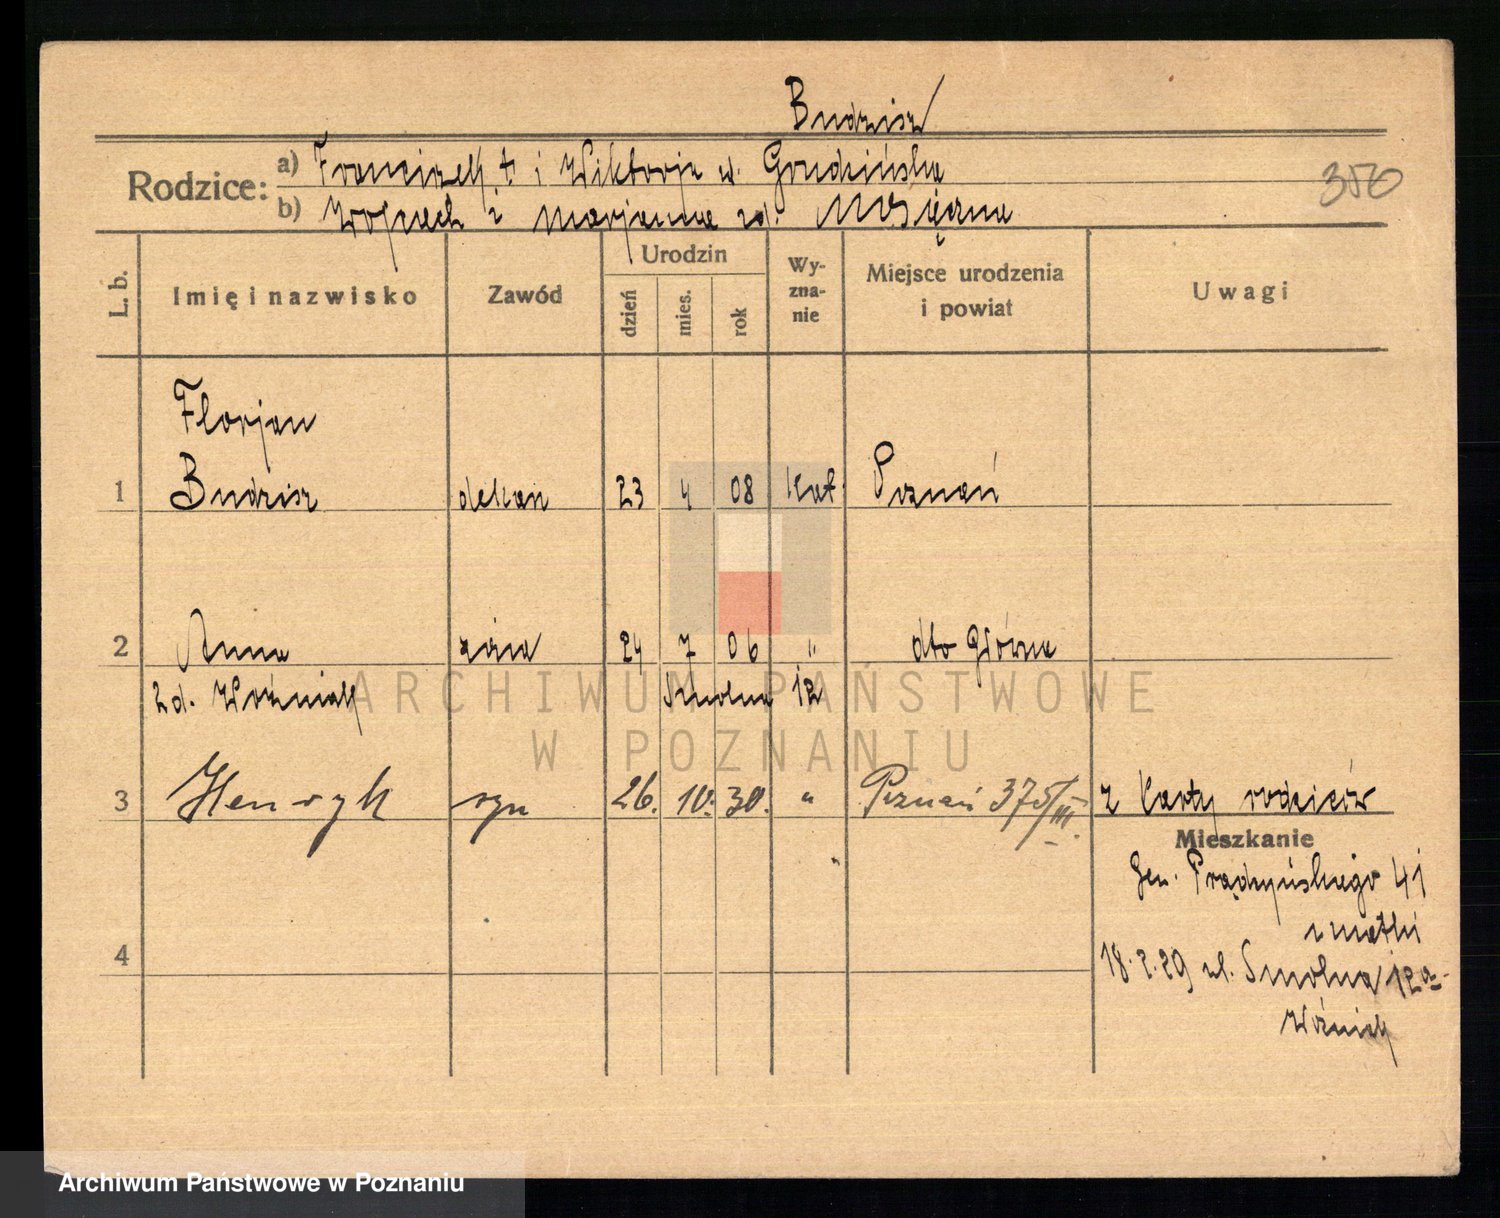 Budzisz
Rodzice: a) Franciszek † i Wiktorja w. Grudzińska
b) Wojciech i Marjanna zd. Mosiężna
350
L. b. Imię i nazwisko Zawód Urodzin dzień mies. rok Wy-zna-nie Miejsce urodzenia i powiat Uwagi
Florjan
1 Budzisz dekarz 23 4 08 kat. Poznań
2 Anna żona 24 7 06 " dto Główna
zd. Woźniak Smolna 12
3 Henryk syn 26. 10. 30. " Poznań 375/III. z karty rodziców
Mieszkanie
Gen. Prądzyńskiego 41
u matki
4
18.2.29 ul. Smolna 12a
Woźniak
ARCHIWUM PAŃSTWOWE
W POZNANIU
Archiwum Państwowe w Poznaniu